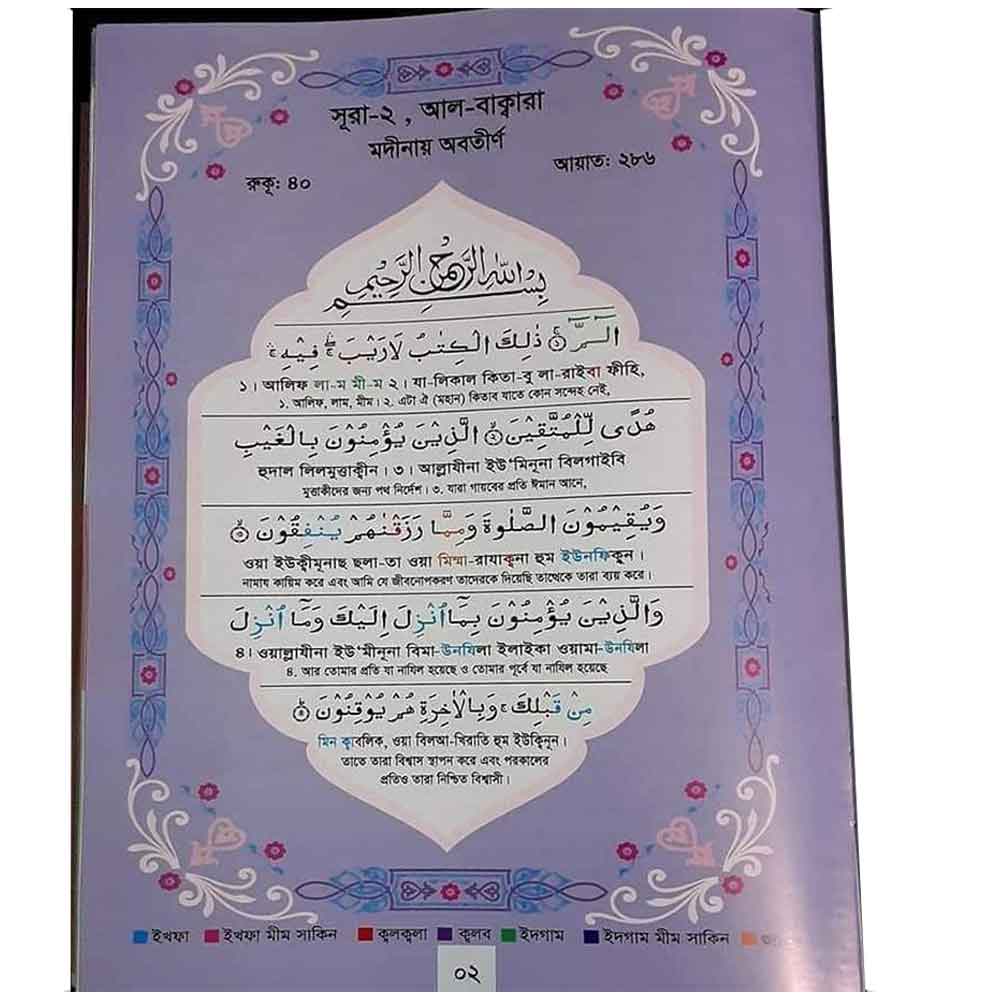 সূরা-২ , আল-বাক্বারা
মদীনায় অবতীর্ণ
রুকূ: ৪০
আয়াত: ২৮৬
بِسْمِ اللهِ الرَّحْمٰنِ الرَّحِيْمِ
الٓـمّٓ ۚ﴿۱﴾ ذٰلِكَ الْكِتٰبُ لَا رَيْبَ ۛۖ فِيْهِ ۛۚ
১। আলিফ লা-ম মী-ম ২। যা-লিকাল কিতা-বু লা-রাইবা ফীহি,
১. আলিফ, লাম, মীম। ২. এটা ঐ (মহান) কিতাব যাতে কোন সন্দেহ নেই,
هُدًى لِّلْمُتَّقِيْنَ ۙ﴿۲﴾ الَّذِيْنَ يُؤْمِنُوْنَ بِالْغَيْبِ
হুদাল লিলমুত্তাক্বীন। ৩। আল্লাযীনা ইউ‘মিনূনা বিলগাইবি
মুত্তাকীদের জন্য পথ নির্দেশ। ৩. যারা গায়বের প্রতি ঈমান আনে,
وَيُقِيْمُوْنَ الصَّلٰوةَ وَمِمَّا رَزَقْنٰهُمْ يُنْفِقُوْنَ ۙ﴿۳﴾
ওয়া ইউক্বীমূনাছ ছলা-তা ওয়া মিম্মা-রাযাক্বূনা হুম ইউনফিকূন।
নামায কায়িম করে এবং আমি যে জীবনোপকরণ তাদেরকে দিয়েছি তাথেকে তারা ব্যয় করে।
وَالَّذِيْنَ يُؤْمِنُوْنَ بِمَآ اُنْزِلَ اِلَيْكَ وَمَآ اُنْزِلَ
৪। ওয়াল্লাযীনা ইউ‘মীনূনা বিমা-উনযিলা ইলাইকা ওয়ামা-উনযিলা
৪. আর তোমার প্রতি যা নাযিল হয়েছে ও তোমার পূর্বে যা নাযিল হয়েছে
مِنْ قَبْلِكَ ۚ وَبِالْاٰخِرَةِ هُمْ يُوْقِنُوْنَ ؕ﴿۴﴾
মিন ক্বাবলিক, ওয়া বিলআ-খিরাতি হুম ইউকিনূন।
তাতে তারা বিশ্বাস স্থাপন করে এবং পরকালের
প্রতিও তারা নিশ্চিত বিশ্বাসী।
ইখফা ইখফা মীম সাকিন ক্বলক্বলা ক্বলব ইদগাম ইদগাম মীম সাকিন
০২